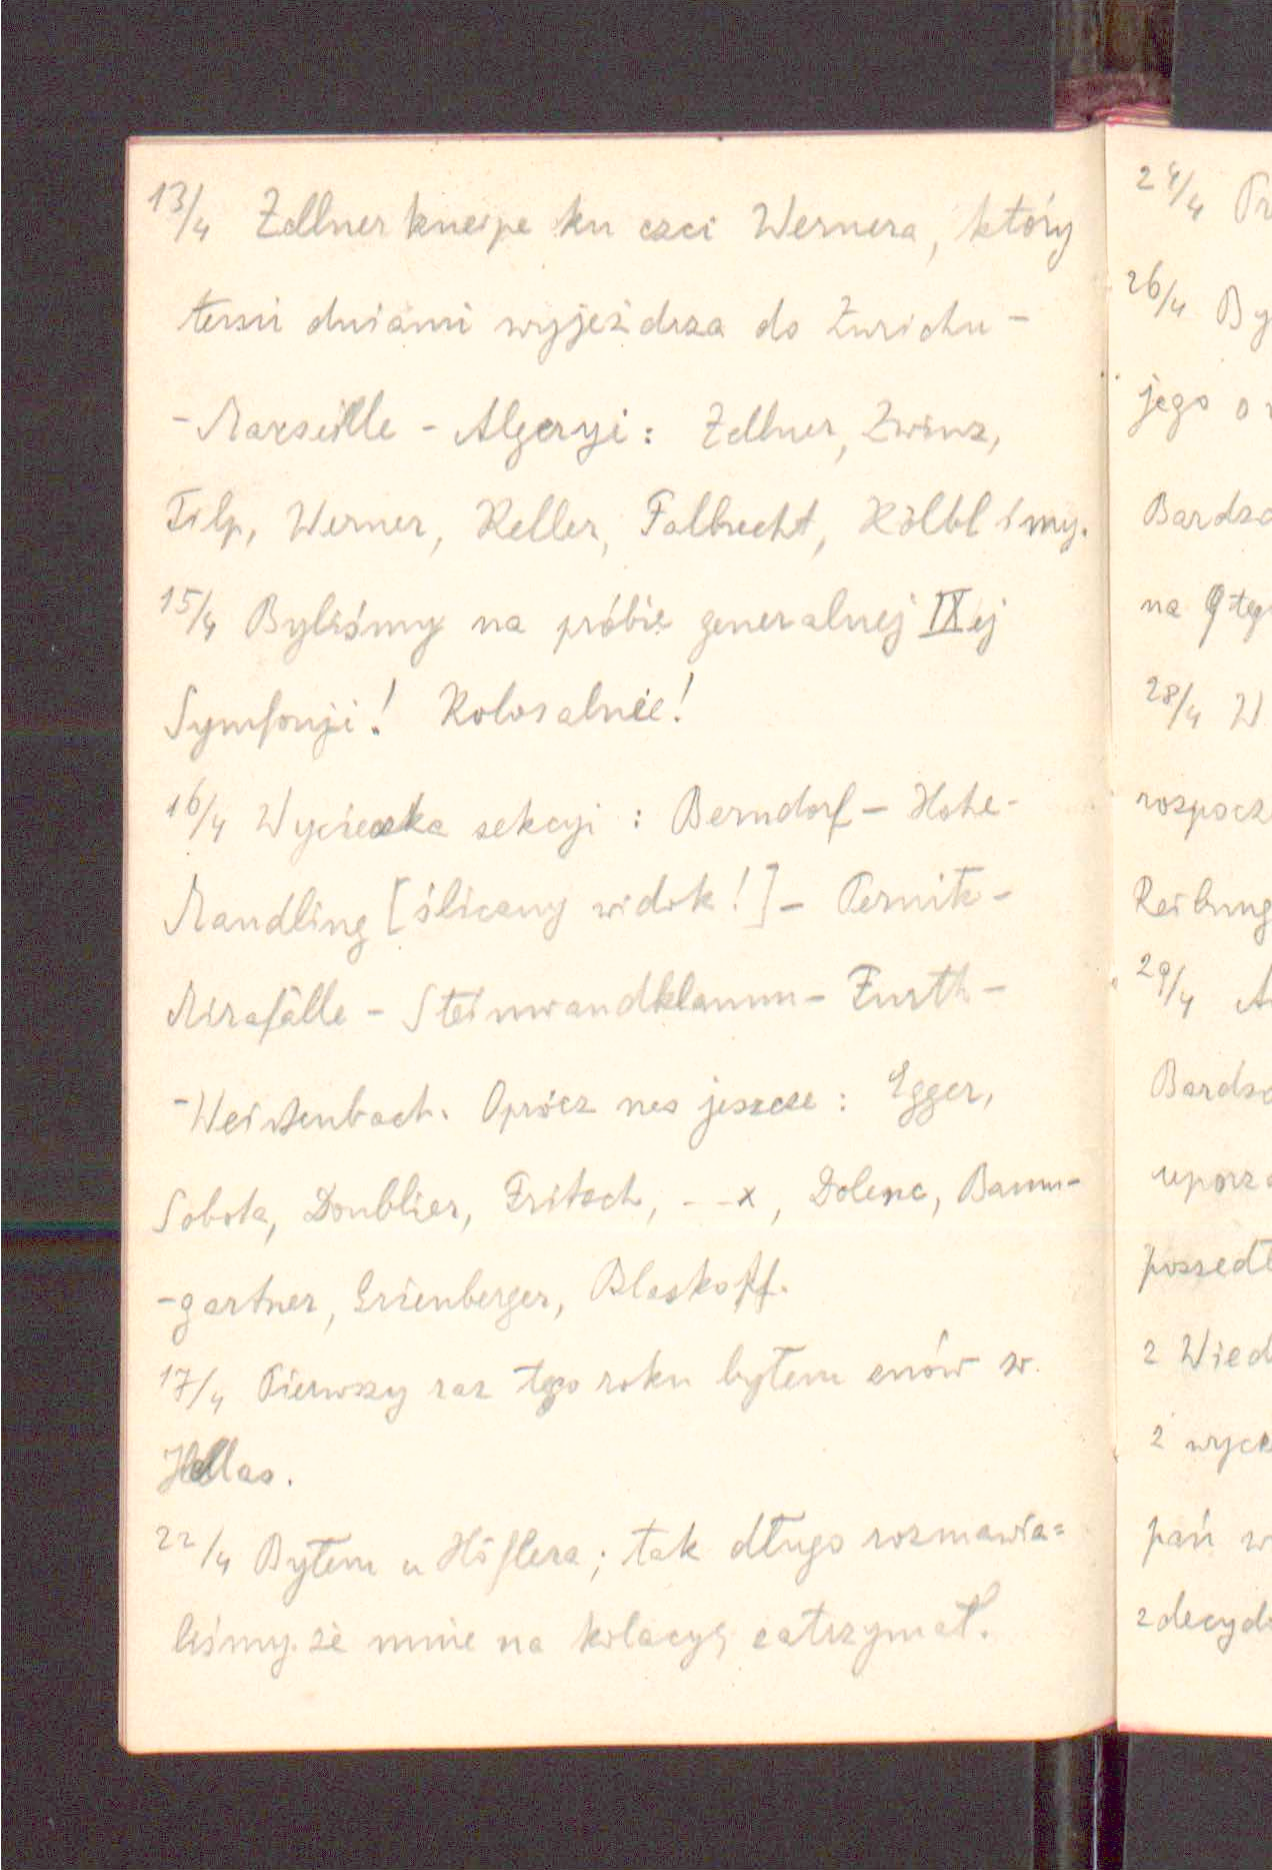 13/4 Zellnerkneipe ku czci Wernera, który
temi dniami wyjeżdza do Zurichu -
- Marseille - Algeryi: Zellner, Zwinz,
Filp, Werner, Keller, Falbrecht, Kölbl i my.
15/4 Byliśmy na próbie generalnej IXej
Symfonji! Kolosalnie!
16/4 Wycieczka sekcyi: Berndorf - Hohe-
Mandling [śliczny widok!] - Pernitz -
Mirafälle - Steinwandklamm - Furth -
- Weissenbach. Oprócz nas jeszcze: Egger,
Sobota, Doublier, Fritsch, - - x, Dolenc, Baum-
-gartner, Grienberger, Blaskopf.
17/4 Pierwszy raz tego roku byłem znów w
Hellas.
22/4 Byłem u Höflera; tak długo rozmawia=
liśmy że mnie na kolacyę zatrzymał.
24/4 Pr
26/4 By
jego o
Bardzo
na 9tej
28/4 W
rozpocz
Reibung
29/4
Bardzo
uporz
poszedł
z Wied
z wyci
pań w
zdecydo